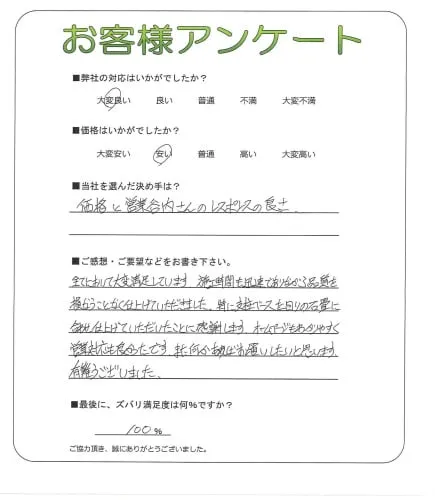 お客様アンケート
■弊社の対応はいかがでしたか?
大変良い 良い 普通 不満 大変不満
■価格はいかがでしたか?
大変安い 安い 普通 高い 大変高い
■当社を選んだ決め手は?
価格と営業 さんのレスポンスの良さ。
■ご感想・ご要望などをお書き下さい。
全てにおいて大変満足しています。施工時間も迅速でありながら品質を
損なうことなく仕上げていただきました。特に支柱ベースを周りの石畳に
合わせ仕上げていただいたことに感謝します。ホームページもわかりやすく
営業対応も良かったです。また何かあればお願いしたいと思います。
有難うございました。
■最後に、ズバリ満足度は何%ですか?
100%
ご協力頂き、誠にありがとうございました。